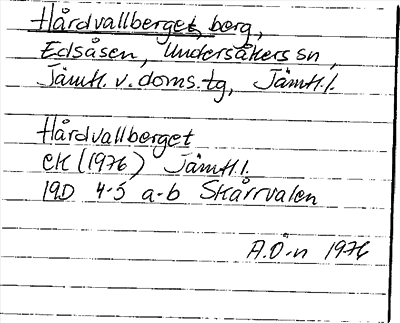 Hårdvallberget, berg,
Edsåsen, Undersåkers sn,
Jämtl. v. doms. tg, Jämtl. l.
Hårdvallberget
ek (1976) Jämtl. l.
19D 4-5 a-b Skårvalen
A.Ö-n 1976